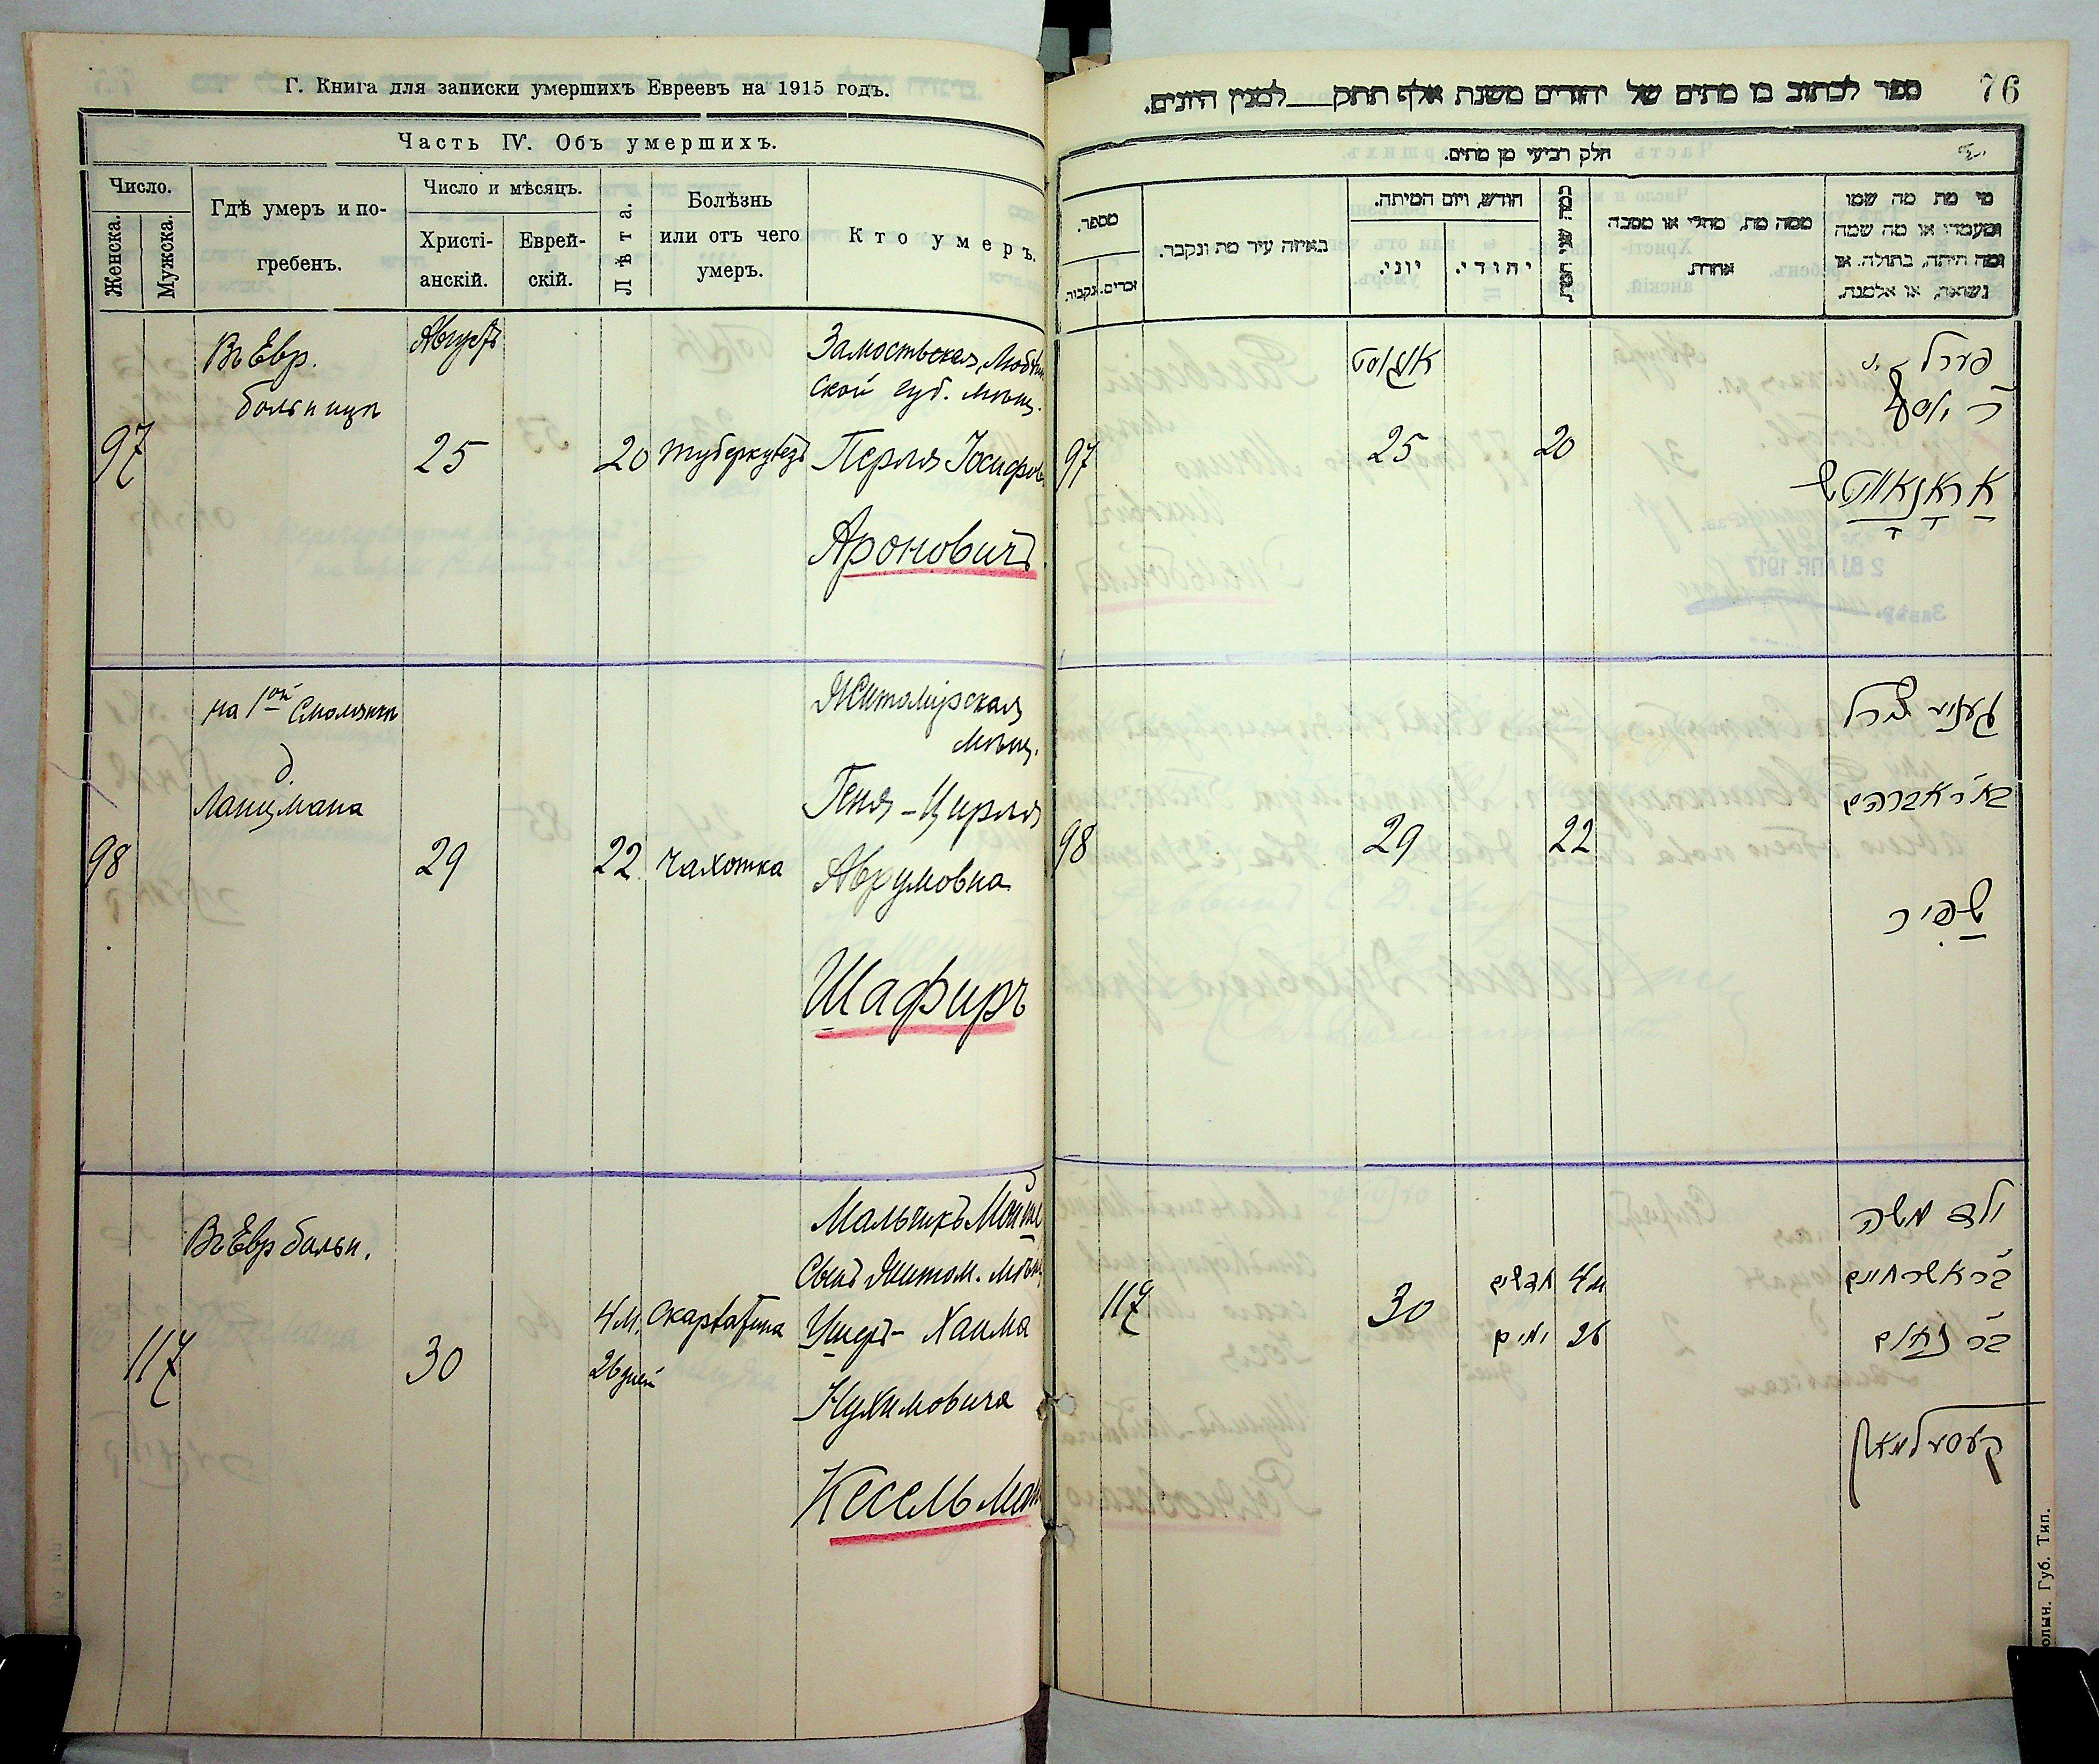 Г. Книга для записки умершихъ Евреевъ на 1915 годъ.
Часть IV. Объ умершихъ.
Число.
Женска.
Мужска.
Гдѣ умеръ и по-
гребенъ.
Число и мѣсяцъ.
Христі-
анскій.
Еврей-
скій.
Лѣта.
Болѣзнь
или отъ чего
умеръ.
Кто умеръ.
Въ Евр.
больницѣ
Августъ
97
25
20
туберкулезъ
Замостьская, Люблин
ской губ. мѣщ.
Перля Іосифов
Ароновичъ
на 1ой Смолянкѣ
д.
Ланцмана
98
29
22
чахотка
Житомірская
мѣщ.
Геня-Цирля
Аврумовна
Шафиръ
Въ Евр больн.
117
30
4 м.
26 дней
скарлатина
Мальчикъ Мойше
Сынъ Житом. мѣщ
Ушеръ- Хаима
Нухимовича
Кесельман
76
ספר לכתוב בו מתים של יהודים משנת אלף תתק למנין היונים.
חלק רביעי מן מתים.
מספר.
זכרים.
נקבות.
באיזה עיר מת ונקבר.
חודש, ויום המיתה.
יוני.
יהודי.
כמה שני המת
ממה מת, מחלי או מסבה
אחרת.
מי מת מה שמו
ומעמדו או מה שמה
ומה היתה, בתולה. או
נשואה, או אלמנה.
97
אוגוסט
25
20
פערל
ר' יוסף
אראנאוויטש
98
29
22
געניע צירל
בר' אברהם
שפיר
117
30
חדשים 4
ימים 26
ילד משה
בר' אשר חיים
בר' נחום
קעסעלמאן
олын. Губ. Тип.